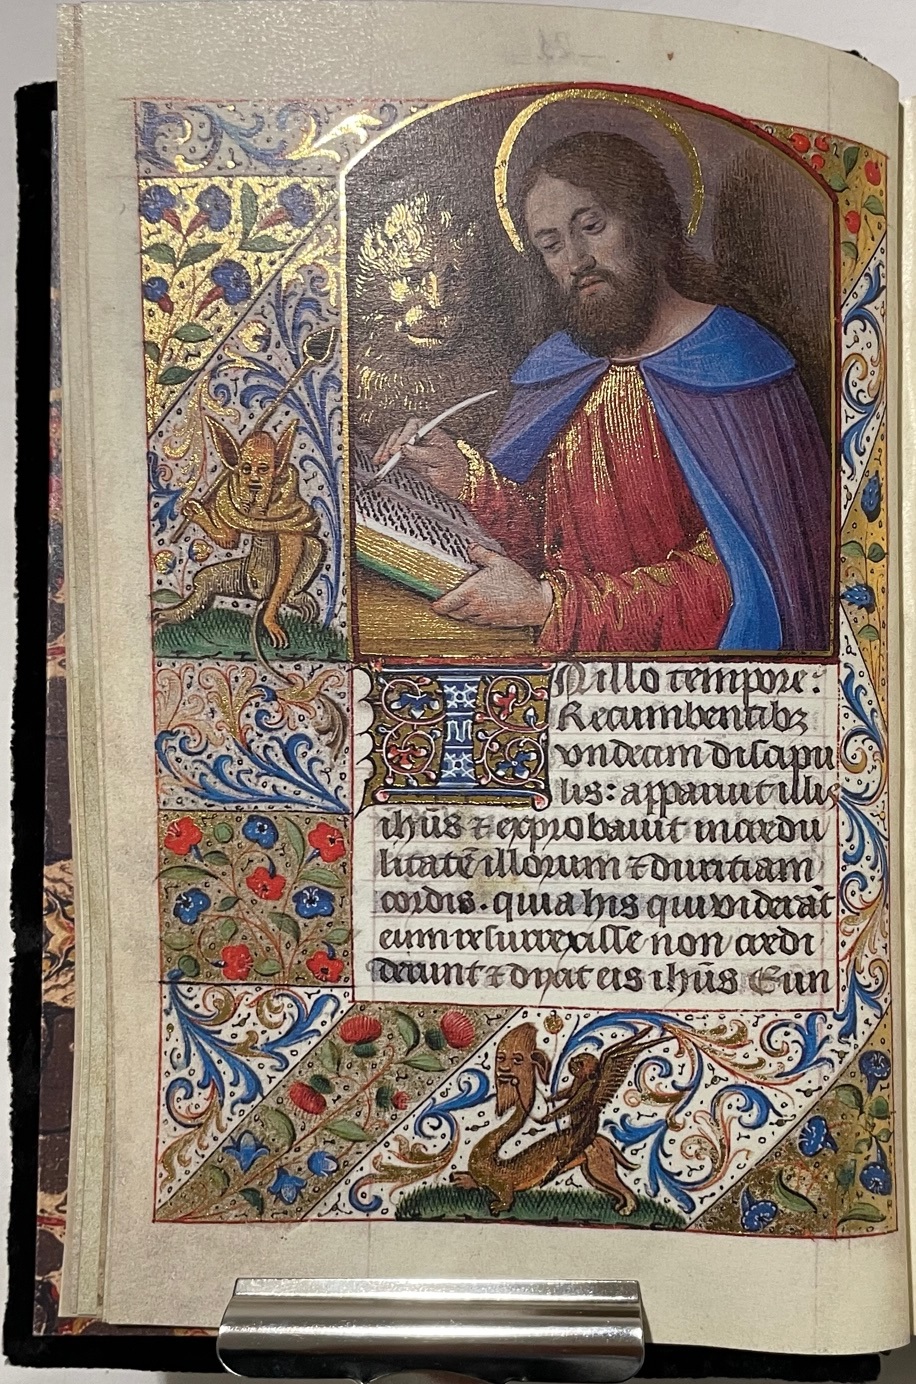 IN illo tempore:
Recumbentibz
vndecim discipu
lis: apparuit illis
ihūs ⁊ exprobauit incredu
litatē illorum ⁊ duritiam
cordis. quia his qui viderāt
eum resurrexisse non credi
derunt ⁊ dixit eis ihūs Eun